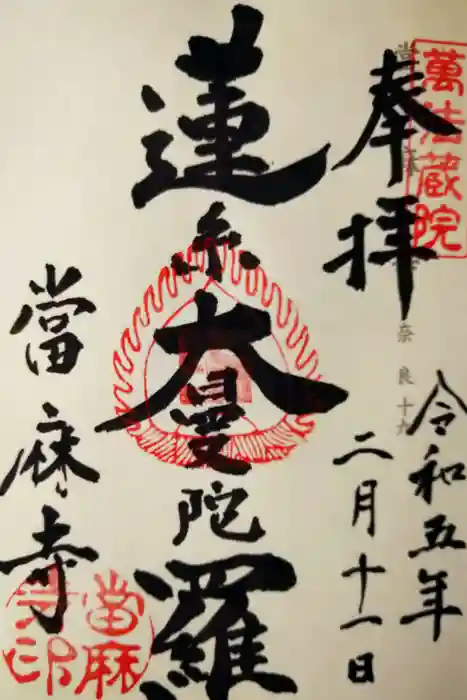 萬法蔵院
奉拝
令和五年
二月十一日
蓮糸大曼陀羅
當麻寺
當麻寺印
奈良十六